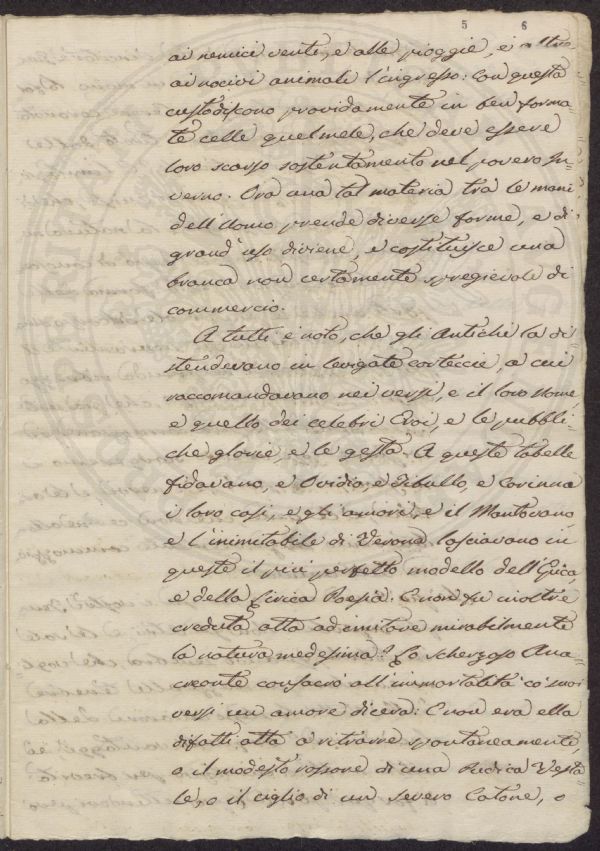 5 6
ai nemici venti, e alle pioggie, e altresì
ai nocivi animali l'ingresso: con questa
custodiscono providamente in ben forma-
te celle quel mele, che deve essere
loro scarso sostentamento nel povero In-
verno. Ora una tal materia tra le mani
dell'Uomo prende diverse forme, e di
grand'uso diviene, e costituisce una
branca non certamente spregievole di
commercio.
A tutti è noto, che gli Antichi la di-
stendevano in levigate corteccie, a cui
raccomandavano nei versi, e il loro nome
e quello dei celebri Eroi, e le pubbli-
che glorie, e le gesta. A queste tabelle
fidavano, e Ovidio, e Tibullo, e Corinna
i loro casi, e gli amori, e il Mantovano
e l'inimitabile di Verona lasciavano in
queste il più perfetto modello dell'Epica,
e della Lirica Poesia. E non fu inoltre
creduta atta ad imitare mirabilmente
la natura medesima? Lo scherzoso Ana-
creonte consacrò all'immortalità co' suoi
versi un amore di cera: E non era ella
difatti atta a ritrarre spontaneamente,
o il modesto rossore di una Pudica Vesta-
le, o il ciglio di un severo Catone, o